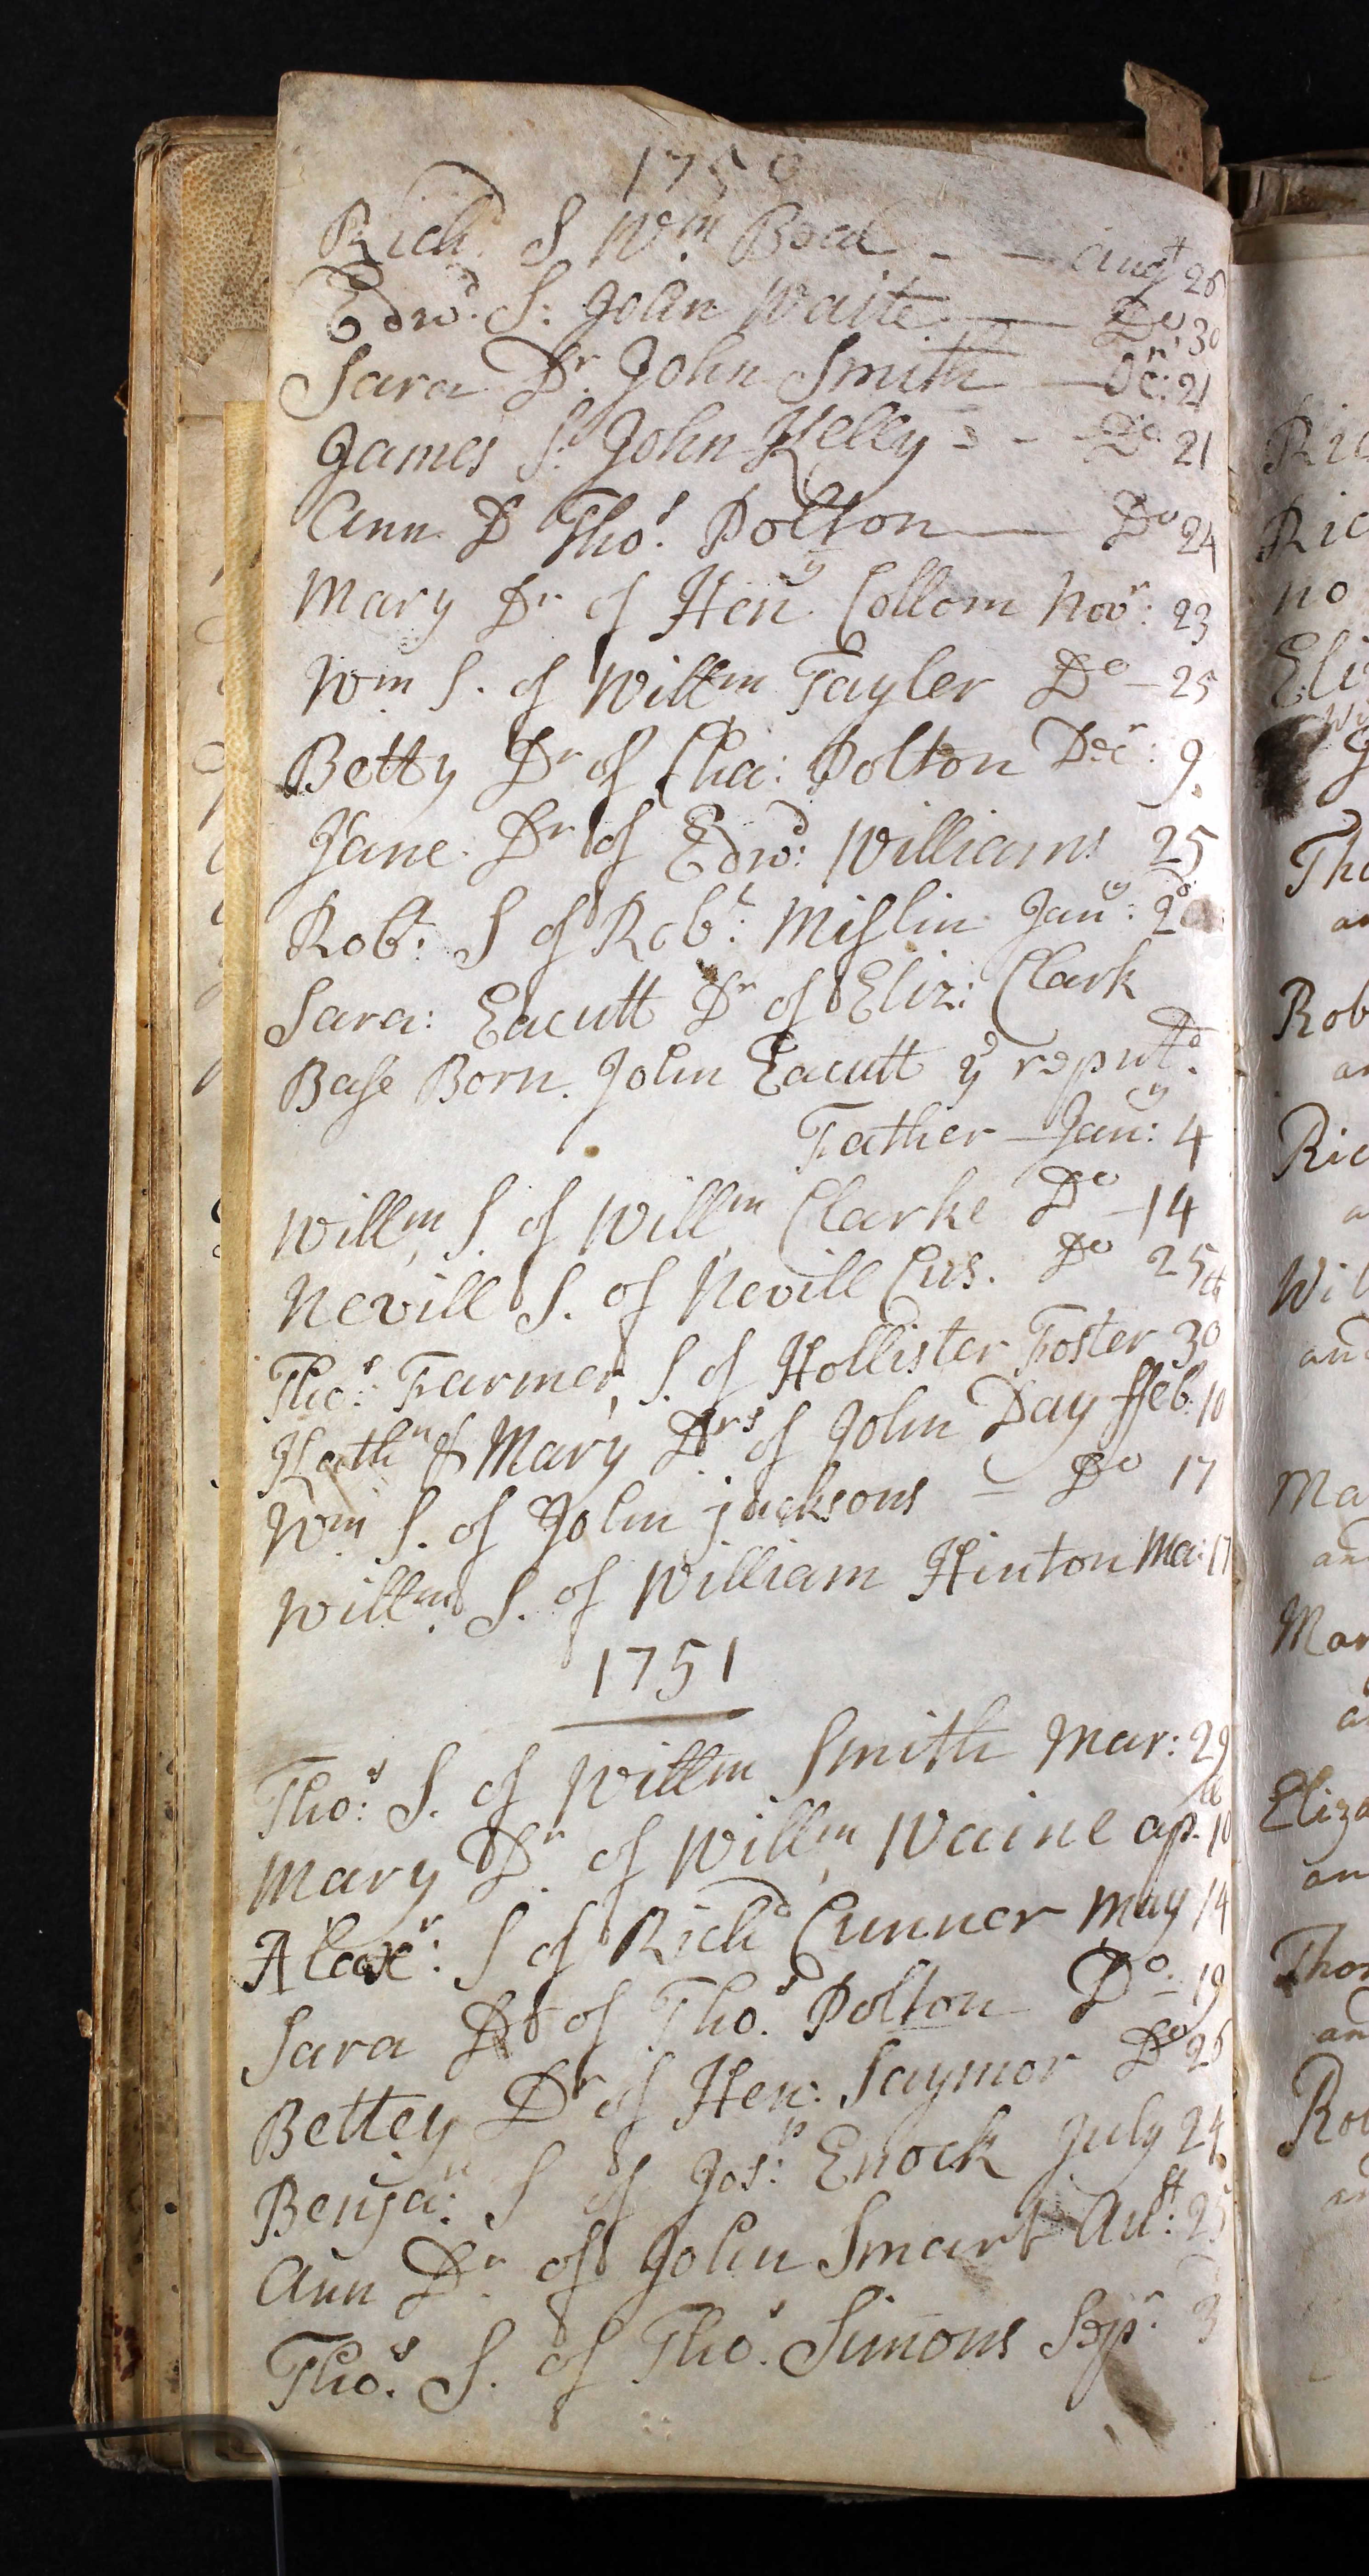 1750
Richd S Wm Boed - - Augt 26
Edwd. S: John Waite — Do 30
Sara Dr. John Smith — Ocr: 21
James S: John Kelly - - Do 21
Ann D Thos. Polton — Do 24
Mary Dr of Heny. Collom Novr: 23
Wm S. of Willm Tayler Do — 25
Betty Dr of Cha: Polton Decr: 9.
Jane Dr of Edwd: Williams 25
Robt: S of Robt: Mislin Jany: 20
Sara: Eacutt Dr of Eliz: Clark
Base Born. John Eacutt ye reputd.
Father — Jany: 4
Willm S. of Willm Clarke Do — 14
Nevill S. of Nevill Cus. Do 25
Thos: Farmer, S. of Hollister Foster 30
Kathn & Mary Drs of John Day ffeb: 10
Wm S. of John jacksons — Do 17
Willm. S. of William Hinton Ma: 17
1751
Thos: S. of Willm Smith Mar: 29
Mary Dr. of Willm Waine ap. 10
Alexr: S of Richd Cunner May 14
Sara Dr of Thos. Polton Do — 19
Bettey Dr of Hen: Saymor Do 26
Benjan: S of Josp: Enock July 24
Ann Dr. of John Smart Aust: 25
Thos. S. of Thos. Simons Sepr. 3
Ric
Ric
no
Eli
Tho
an
Rob
an
Ric
a
Wil
and
Ma
an
Mar
a
Eliza
an
Thom
an
Rob
an